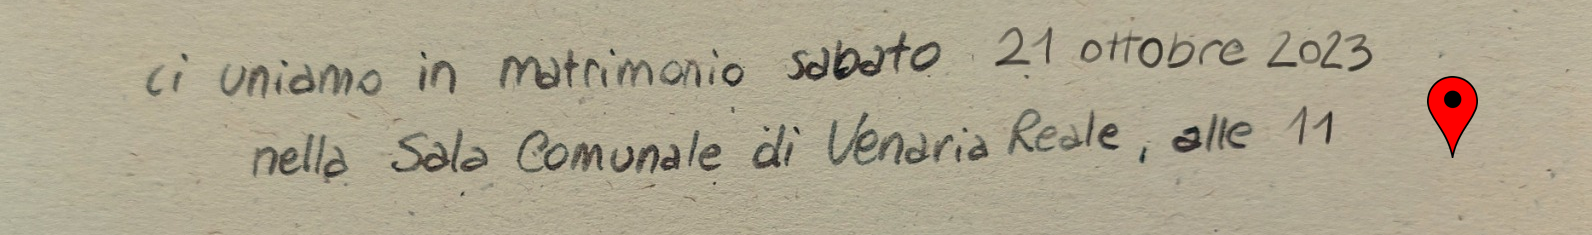 ci uniamo in matrimonio sabato 21 ottobre 2023
nella Sala Comunale di Venaria Reale, alle 11